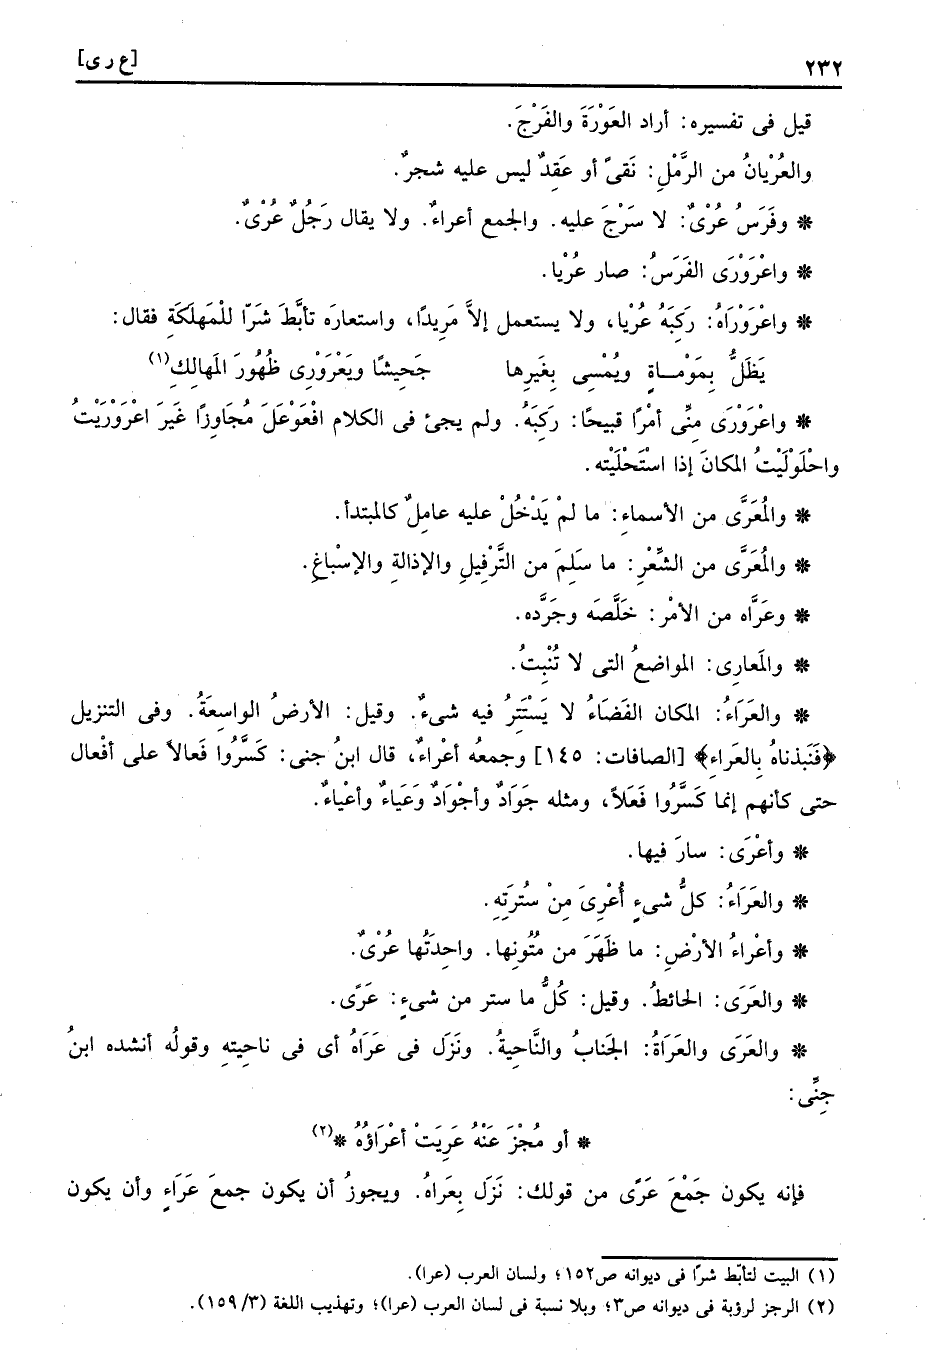 ٢٣٢
[ع ر ى]
قيل فى تفسيره: أراد العَوْرَةَ والفَرْجَ.
والعُرْيانُ من الرَّمْلِ: نَقىً أو عَقِدٌ ليس عليه شجرٌ.
* وفَرَسُ عُرْىٌ: لا سَرْجَ عليه. والجمع أعراءٌ. ولا يقال رَجُلٌ عُرْىٌ.
* واعْرَوْرَى الفَرَسُ: صار عُرْيا.
* واعْرَوْرَاهُ: رَكِبَهُ عُرْيا، ولا يستعمل إلاَّ مَزِيدًا، واستعارَه تأبَّطَ شَرّا للْمَهلَكَةِ فقال:
يَظَلُّ بِمَوْمـاةٍ ويُمْسِى بِغَيرِها جَحِيشًا ويَعْرَوْرِى ظُهُورَ المَهالِكِ(١)
* واعْرَوْرَى مِنِّى أمْرًا قبيحًا: رَكِبَهُ. ولم يجئ فى الكلام افْعَوْعَلَ مُجَاوِزًا غَيرَ اعْرَوْرَيْتُ
واحْلَوْلَيْتُ المكانَ إذا اسْتَحْلَيْته.
* والمُعَرَّى من الأسماءِ: ما لمْ يَدْخُلْ عليه عامِلٌ كالمبتدأ.
* والمُعَرَّى من الشِّعْرِ: ما سَلِمَ من التَّرْفيلِ والإذالةِ والإسْباغِ.
* وعَرَّاه من الأمْرِ: خَلَّصَه وجَرَّده.
* والمَعارِى: المواضعُ التى لا تُنْبِتُ.
* والعَرَاءُ: المكان الفَضَاءُ لا يَسْتَتِرُ فيه شىءٌ. وقيل: الأرضُ الواسعَةُ. وفى التنزيل
﴿فَنَبذناهُ بِالعَراءِ﴾ [الصافات: ١٤٥] وجمعُه أعْراءٌ، قال ابنُ جنى: كَسَّرُوا فَعالاً على أفْعال
حتى كأنهم إنما كَسَّرُوا فَعَلاً، ومثله جَوَادٌ وأجْوَادٌ وَعَياءٌ وأعْياءٌ.
* وأعْرَى: سارَ فيها.
* والعَرَاءُ: كلُّ شىءٍ أُعْرِىَ مِنْ سُترَتِهِ.
* وأعْراءُ الأرْضِ: ما ظَهَرَ من مُتُونِها. واحِدَتُها عُرْىٌ.
* والعَرَى: الحائطُ. وقيل: كُلُّ ما ستر من شىءٍ: عَرًى.
* والعَرَى والعَرَاةُ: الجَنابُ والنَّاحِيةُ. ونَزَل فى عَرَاهُ أى فى ناحِيتِهِ وقولُه أنشده ابنُ
جِنِّى:
* أو مُجْزَ عَنْهُ عَرِيَتْ أعْرَاؤُهُ *(٢)
فإنه يكون جَمْعَ عَرًى من قولك: نَزَل بِعَراهُ. ويجوزُ أن يكون جمعَ عَرَاءٍ وأن يكون
(١) البيت لتأبّط شرًا فى ديوانه ص١٥٢؛ ولسان العرب (عرا).
(٢) الرجز لرؤبة فى ديوانه ص٣؛ وبلا نسبة فى لسان العرب (عرا)؛ وتهذيب اللغة (٣/ ١٥٩).